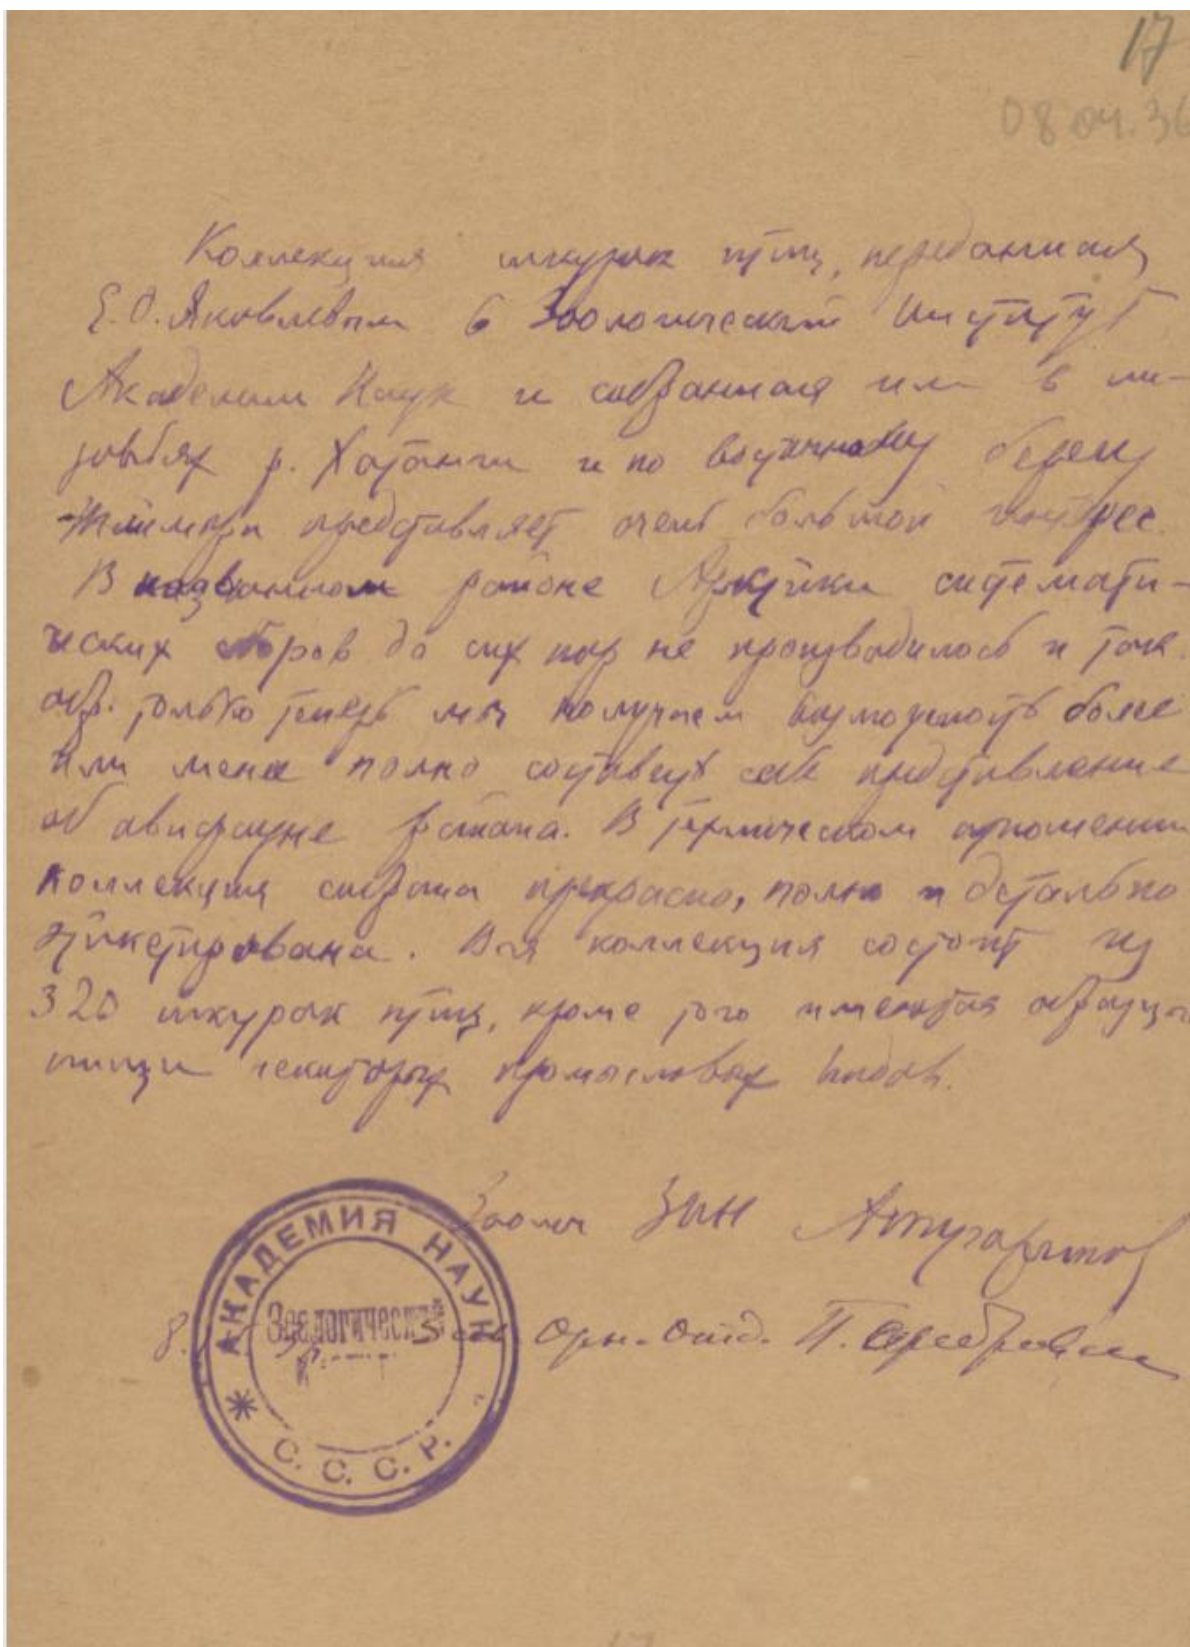 17
08.04.36
Коллекция шкурок птиц, переданная
Е.О. Яковлевым в Зоологический Институт
Академии Наук и собранная им в ни-
зовьях р. Хатанги и по восточному берегу
Таймыра представляет очень большой интерес.
В названном районе Арктики системати-
ческих сборов до сих пор не производилось и так.
обр. только теперь мы получаем возможность более
или менее полно составить себе представление
об авифауне района. В техническом отношении
коллекция собрана прекрасно, полно и детально
этикетирована. Вся коллекция состоит из
320 шкурок птиц, кроме того имеются образцы
пищи некоторых промысловых видов.
Зоолог ЗИН А. Тугаринов
8. Зав. Орн. Отд. П. Серебровский
АКАДЕМИЯ НАУК
Зоологический
С. С. С. Р.